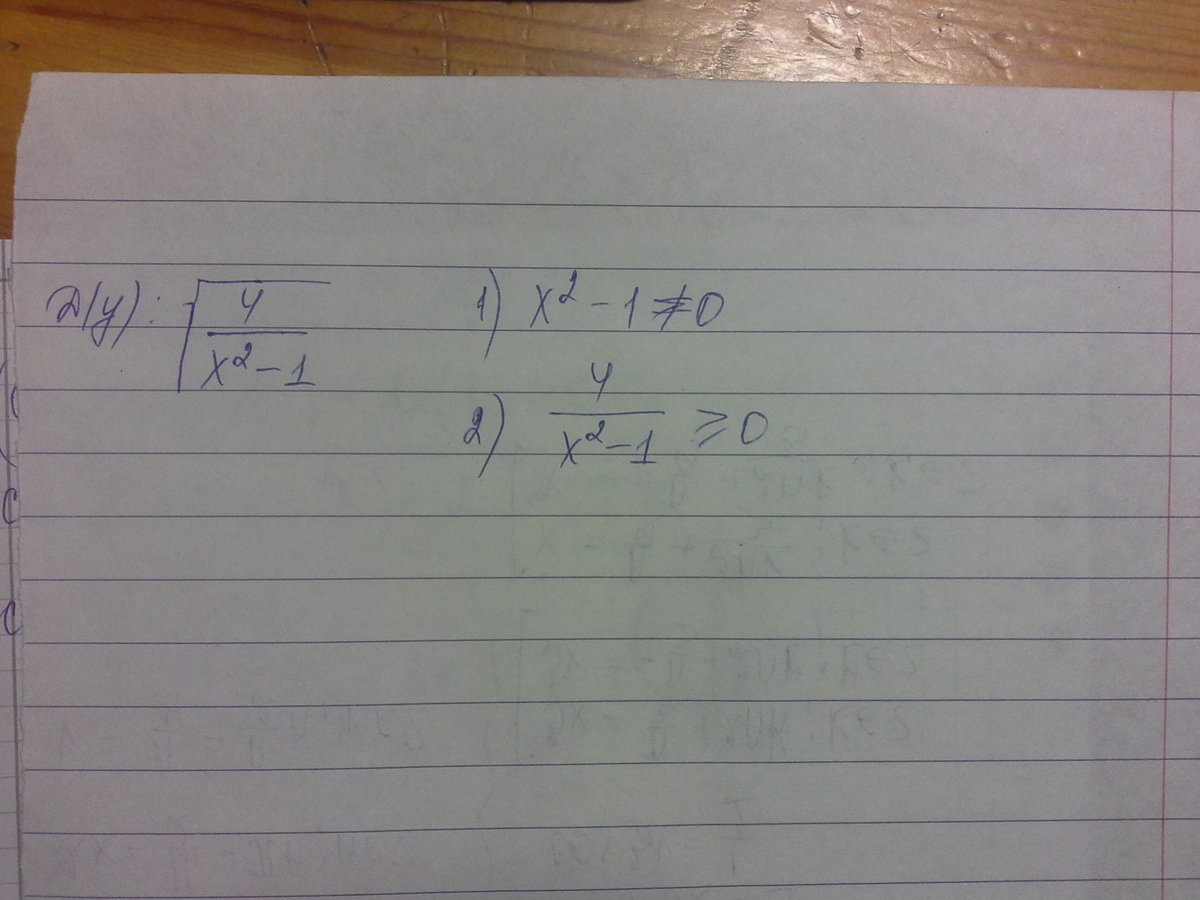 D(y): √(4/(x²-1)) 1) x²-1≠0
2) 4/(x²-1) ≥0